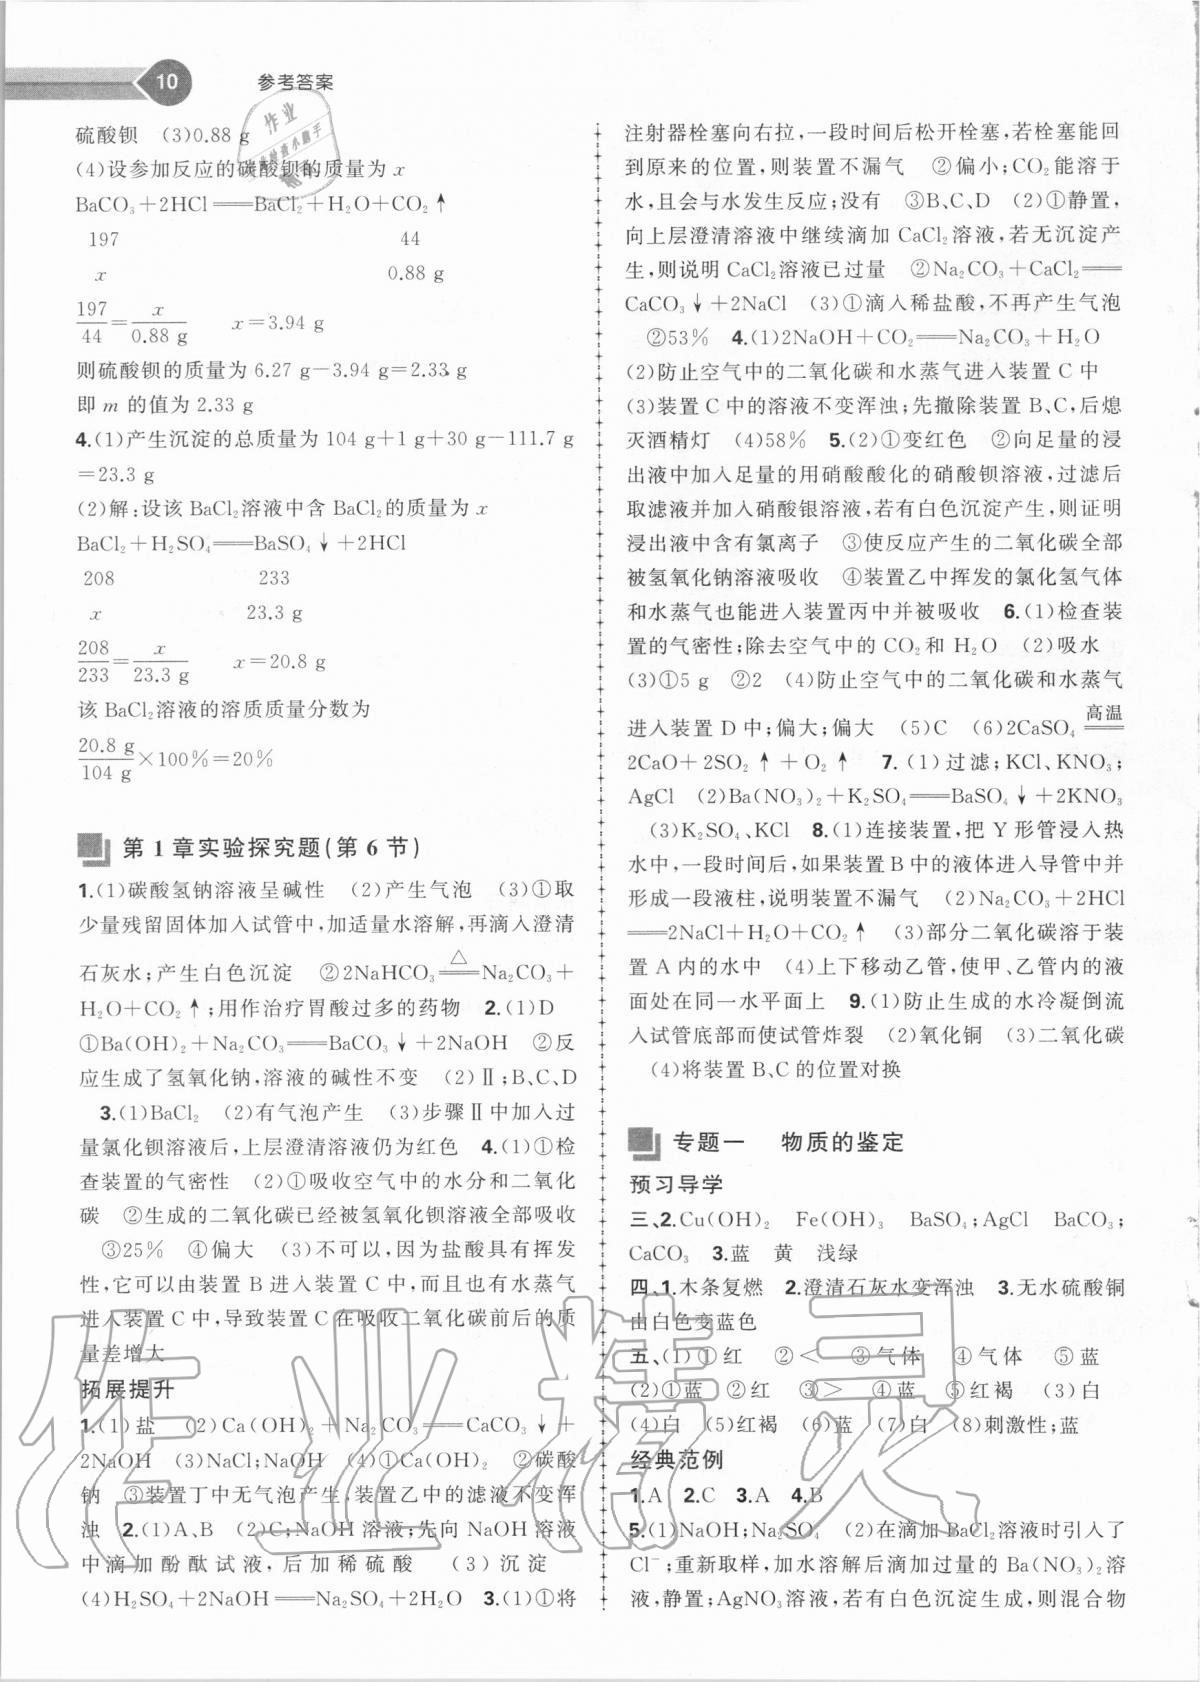 10 参考答案
硫酸钡 (3)0.88 g
(4)设参加反应的碳酸钡的质量为 x
BaCO₃+2HCl══BaCl₂+H₂O+CO₂↑
197 44
x 0.88 g
197/44=x/0.88 g x=3.94 g
则硫酸钡的质量为 6.27 g-3.94 g=2.33 g
即 m 的值为 2.33 g
4.(1)产生沉淀的总质量为 104 g+1 g+30 g-111.7 g
=23.3 g
(2)解:设该 BaCl₂溶液中含 BaCl₂的质量为 x
BaCl₂+H₂SO₄══BaSO₄↓+2HCl
208 233
x 23.3 g
208/233=x/23.3 g x=20.8 g
该 BaCl₂溶液的溶质质量分数为
20.8 g/104 g×100%=20%
第 1 章实验探究题(第 6 节)
1.(1)碳酸氢钠溶液呈碱性 (2)产生气泡 (3)①取
少量残留固体加入试管中,加适量水溶解,再滴入澄清
石灰水;产生白色沉淀 ②2NaHCO₃══(△)Na₂CO₃+
H₂O+CO₂↑;用作治疗胃酸过多的药物 2.(1)D
①Ba(OH)₂+Na₂CO₃══BaCO₃↓+2NaOH ②反
应生成了氢氧化钠,溶液的碱性不变 (2)Ⅱ;B、C、D
3.(1)BaCl₂ (2)有气泡产生 (3)步骤Ⅱ中加入过
量氯化钡溶液后,上层澄清溶液仍为红色 4.(1)①检
查装置的气密性 (2)①吸收空气中的水分和二氧化
碳 ②生成的二氧化碳已经被氢氧化钡溶液全部吸收
③25% ④偏大 (3)不可以,因为盐酸具有挥发
性,它可以由装置 B 进入装置 C 中,而且也有水蒸气
进入装置 C 中,导致装置 C 在吸收二氧化碳前后的质
量差增大
拓展提升
1.(1)盐 (2)Ca(OH)₂+Na₂CO₃══CaCO₃↓+
2NaOH (3)NaCl;NaOH (4)①Ca(OH)₂ ②碳酸
钠 ③装置丁中无气泡产生,装置乙中的滤液不变浑
浊 2.(1)A、B (2)C;NaOH 溶液;先向 NaOH 溶液
中滴加酚酞试液,后加稀硫酸 (3)沉淀
(4)H₂SO₄+2NaOH══Na₂SO₄+2H₂O 3.(1)①将
注射器栓塞向右拉,一段时间后松开栓塞,若栓塞能回
到原来的位置,则装置不漏气 ②偏小;CO₂能溶于
水,且会与水发生反应;没有 ③B、C、D (2)①静置,
向上层澄清溶液中继续滴加 CaCl₂溶液,若无沉淀产
生,则说明 CaCl₂溶液已过量 ②Na₂CO₃+CaCl₂══
CaCO₃↓+2NaCl (3)①滴入稀盐酸,不再产生气泡
②53% 4.(1)2NaOH+CO₂══Na₂CO₃+H₂O
(2)防止空气中的二氧化碳和水蒸气进入装置 C 中
(3)装置 C 中的溶液不变浑浊;先撤除装置 B、C,后熄
灭酒精灯 (4)58% 5.(2)①变红色 ②向足量的浸
出液中加入足量的用硝酸酸化的硝酸钡溶液,过滤后
取滤液并加入硝酸银溶液,若有白色沉淀产生,则证明
浸出液中含有氯离子 ③使反应产生的二氧化碳全部
被氢氧化钠溶液吸收 ④装置乙中挥发的氯化氢气体
和水蒸气也能进入装置丙中并被吸收 6.(1)检查装
置的气密性;除去空气中的 CO₂和 H₂O (2)吸水
(3)①5 g ②2 (4)防止空气中的二氧化碳和水蒸气
进入装置 D 中;偏大;偏大 (5)C (6)2CaSO₄══(高温)
2CaO+2SO₂↑+O₂↑ 7.(1)过滤;KCl、KNO₃;
AgCl (2)Ba(NO₃)₂+K₂SO₄══BaSO₄↓+2KNO₃
(3)K₂SO₄、KCl 8.(1)连接装置,把 Y 形管浸入热
水中,一段时间后,如果装置 B 中的液体进入导管中并
形成一段液柱,说明装置不漏气 (2)Na₂CO₃+2HCl
══2NaCl+H₂O+CO₂↑ (3)部分二氧化碳溶于装
置 A 内的水中 (4)上下移动乙管,使甲、乙管内的液
面处在同一水平面上 9.(1)防止生成的水冷凝倒流
入试管底部而使试管炸裂 (2)氧化铜 (3)二氧化碳
(4)将装置 B、C 的位置对换
专题一 物质的鉴定
预习导学
三、2.Cu(OH)₂ Fe(OH)₃ BaSO₄;AgCl BaCO₃;
CaCO₃ 3.蓝 黄 浅绿
四、1.木条复燃 2.澄清石灰水变浑浊 3.无水硫酸铜
由白色变蓝色
五、(1)①红 ②< ③气体 ④气体 ⑤蓝
(2)①蓝 ②红 ③> ④蓝 ⑤红褐 (3)白
(4)白 (5)红褐 (6)蓝 (7)白 (8)刺激性;蓝
经典范例
1.A 2.C 3.A 4.B
5.(1)NaOH;Na₂SO₄ (2)在滴加 BaCl₂溶液时引入了
Cl⁻;重新取样,加水溶解后滴加过量的 Ba(NO₃)₂溶
液,静置;AgNO₃溶液,若有白色沉淀生成,则混合物
作业精灵